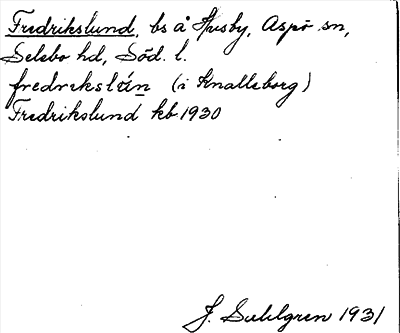 Fredrikslund, bs å Husby, Aspö sn,
Selebo hd, Söd. l.
fredrekslún (i Knalleborg)
Fredrikslund kb 1930
J. Sahlgren 1931